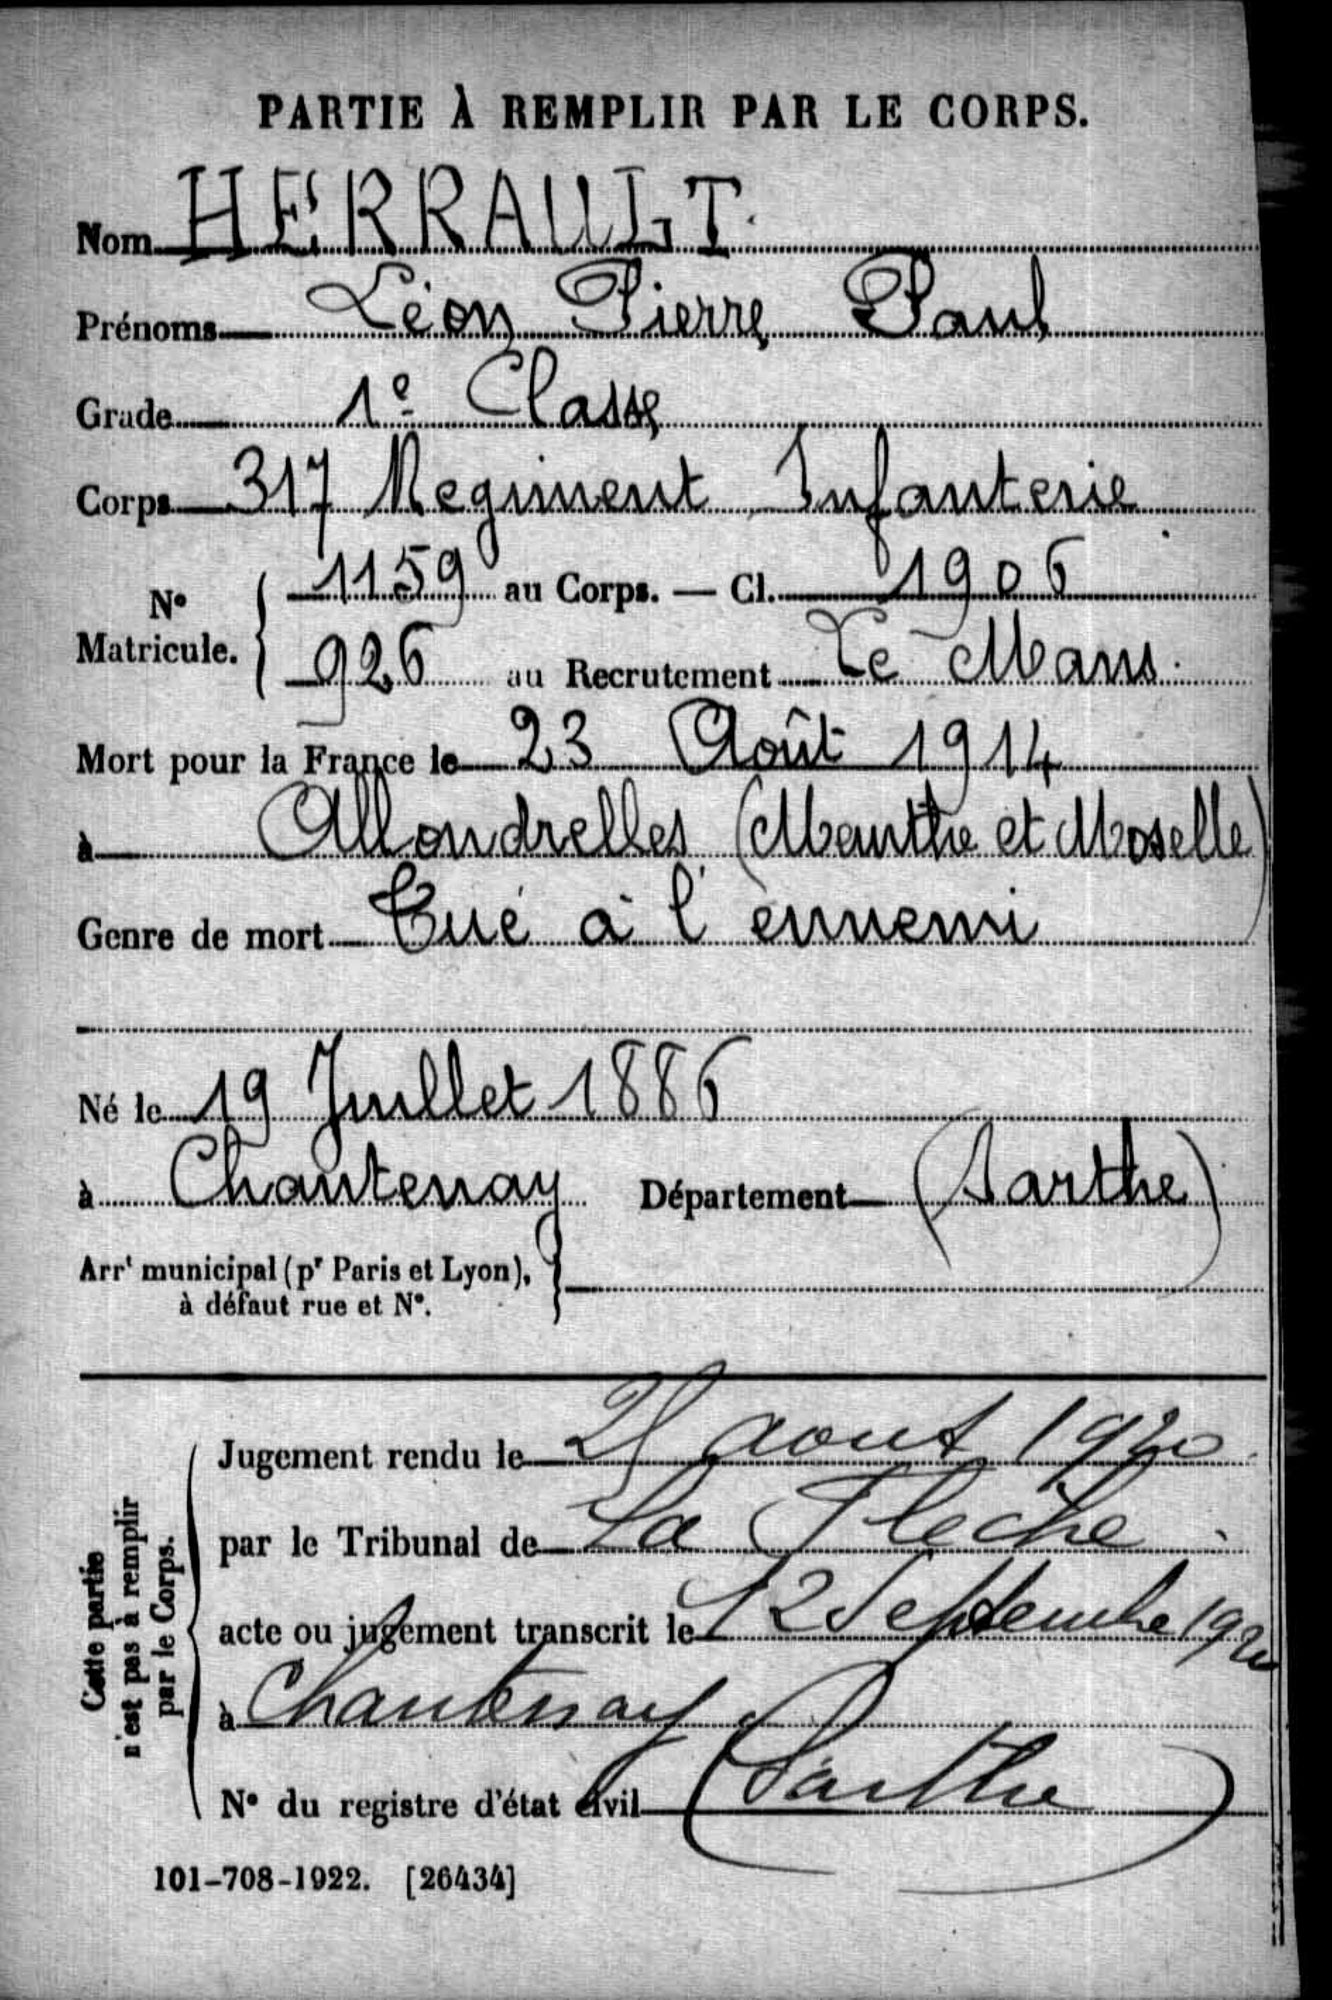 PARTIE À REMPLIR PAR LE CORPS.
Nom HERRAULT.
Prénoms Léon Pierre Paul
Grade 1e Classe
Corps 317 Regiment Infanterie
N° Matricule. { 1159 au Corps. — Cl. 1906
926 au Recrutement Le Mans.
Mort pour la France le 23 Août 1914
à Allondrelles (Meurthe et Moselle)
Genre de mort Tué à l'ennemi
Né le 19 Juillet 1886
à Chantenay Département (Sarthe)
Arrt municipal (pr Paris et Lyon),
à défaut rue et N°.
Cette partie
n'est pas à remplir
par le Corps.
Jugement rendu le aout 1920
par le Tribunal de La Fleche
acte ou jugement transcrit le 12 Septembre 1920
à Chantenay
N° du registre d'état civil (Sarthe)
101-708-1922. [26434]